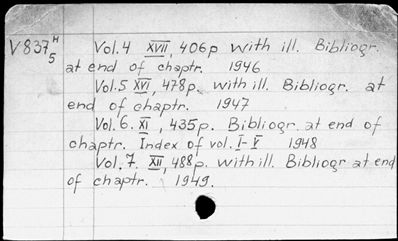 V837 H Vol.4 XVII, 406p with ill. Bibliogr.
5 at end of chaptr. 1946
Vol.5 XVI, 478p. with ill. Bibliogr. at
end of chaptr. 1947
Vol.6. XI, 435p. Bibliogr. at end of
chaptr. Index of vol. I-V 1948
Vol.7. XII, 488p. with ill. Bibliogr at end
of chaptr. 1949.